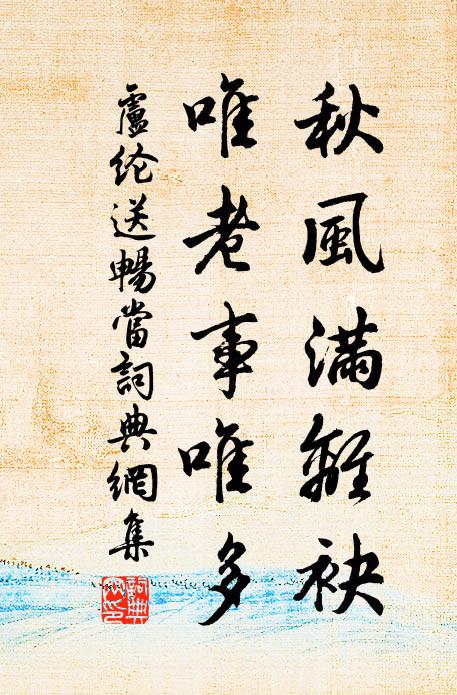 秋風満離袂
唯老事唯多
盧纶送暢當詞典網集